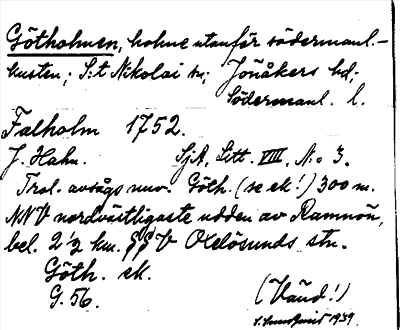 Götholmen, holme utanför södermanl.-
kusten; S:t Nikolai sn; Jönåkers hd;
Södermanl. l.
Falholm 1752.
J. Hahn. SjA, Litt. VIII, N:o 3.
Trol. avsågs nuv. Göth. (se ek!) 300 m.
NNV nordvästligaste udden av Ramnön,
bel. 2 1/2 km. SSV Oxelösunds stn.
Göth. ek.
G. 56. (Vänd!)
1939